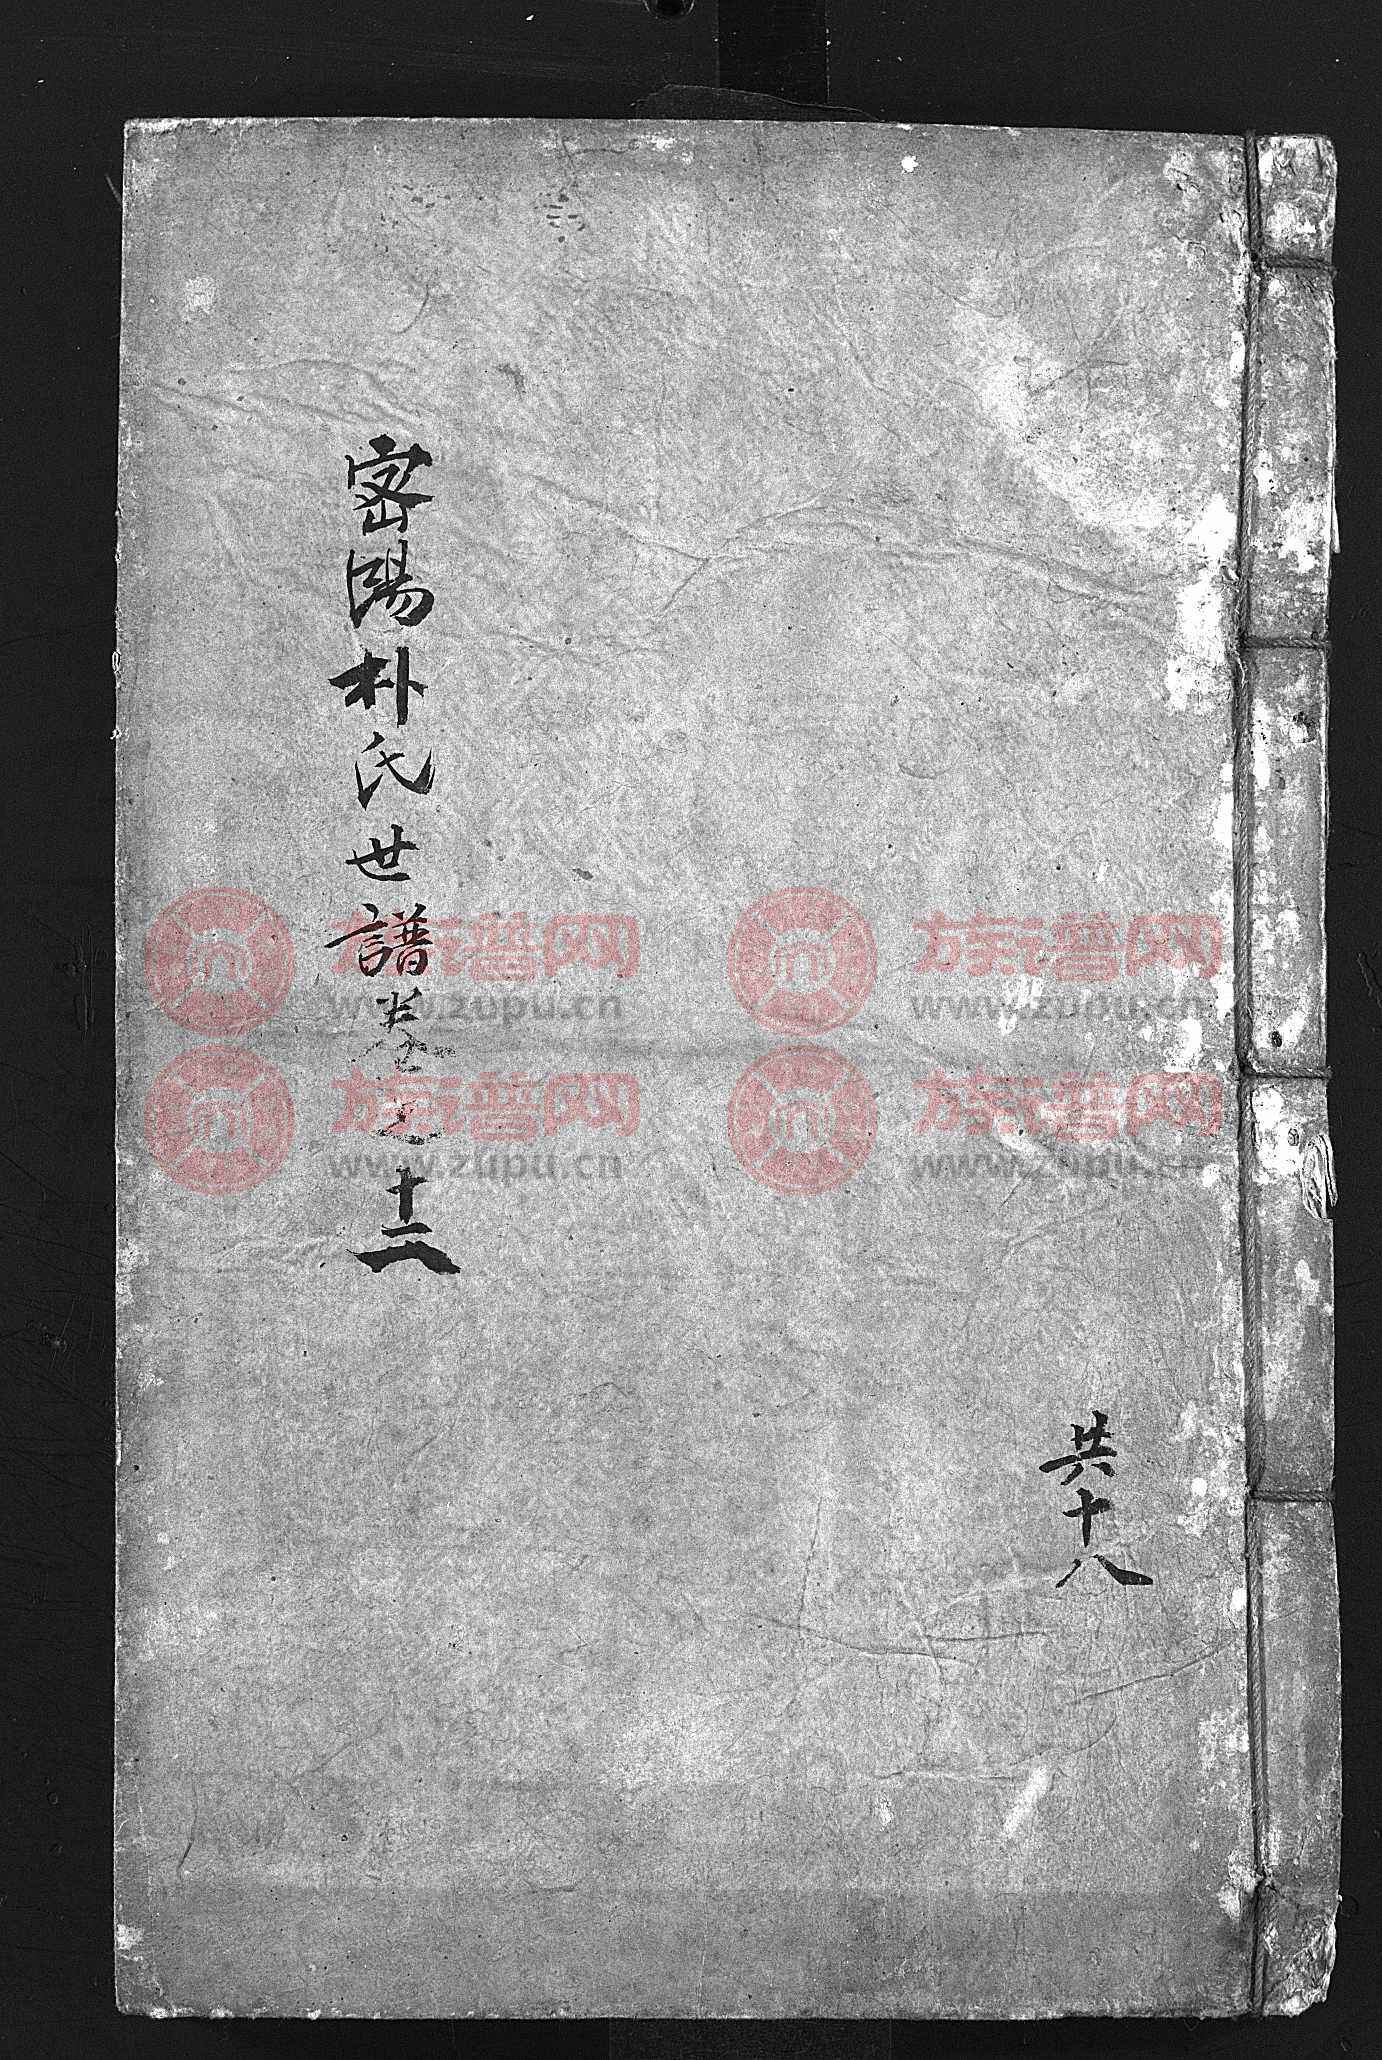 密陽朴氏世譜卷之十二
共十八
族譜网
www.zupu.cn
族譜网
www.zupu.cn
族譜网
www.zupu.cn
族譜网
www.zupu.cn